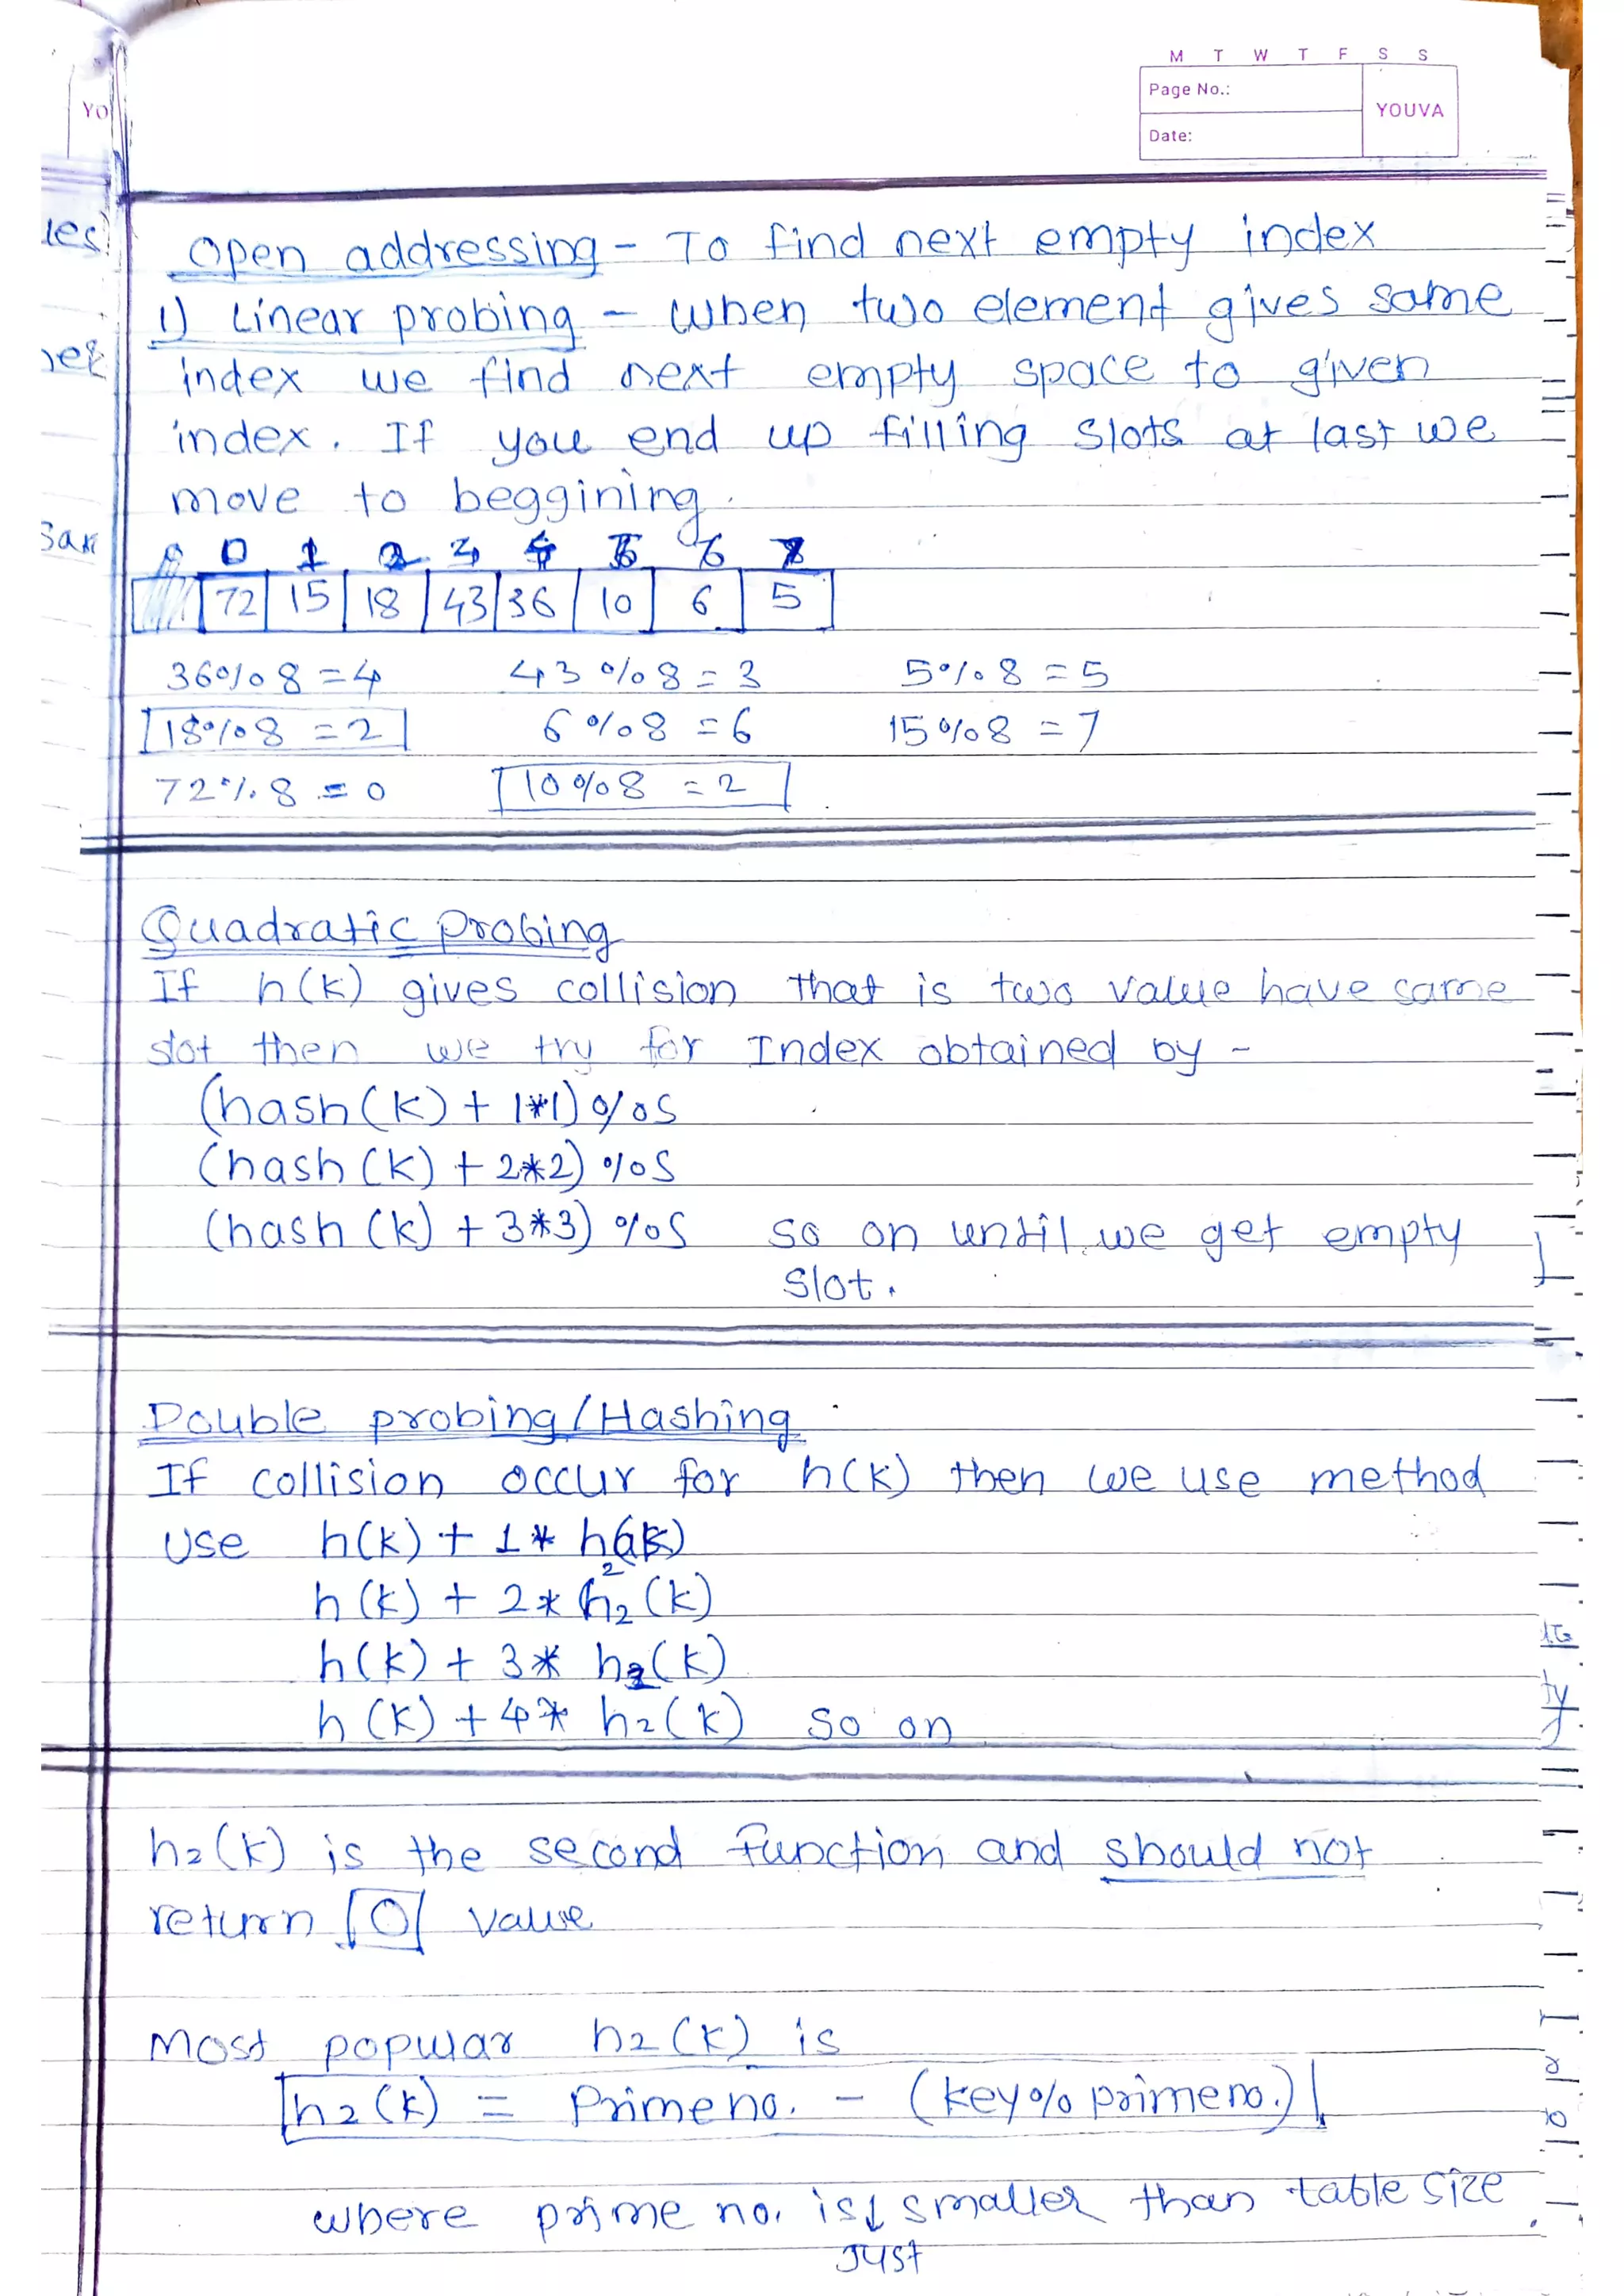 M T W T F S S
Page No.:
YOUVA
Date:
Open addressing - To find next empty index
1) Linear probing - When two element gives same
index we find next empty space to given
index. If you end up filling slots at last we
move to beggining.
0 1 2 3 4 5 6 7
72 15 18 43 36 10 6 5
36%8 = 4 43%8 = 3 5%8 = 5
18%8 = 2 6%8 = 6 15%8 = 7
72%8 = 0 10%8 = 2
Quadratic Probing
If h(k) gives collision that is two value have same
slot then we try for Index obtained by -
(hash(k) + 1*1)%S
(hash(k) + 2*2)%S
(hash(k) + 3*3)%S so on until we get empty
slot.
Double probing/Hashing
If collision occur for h(k) then we use method
use h(k) + 1* h2(k)
h(k) + 2* h2(k)
h(k) + 3* h2(k)
h(k) + 4* h2(k) so on
h2(k) is the second function and should not
return 0 value
Most popular h2(k) is
h2(k) = Prime no. - (key% prime no.)
where prime no. is just smaller than table size.